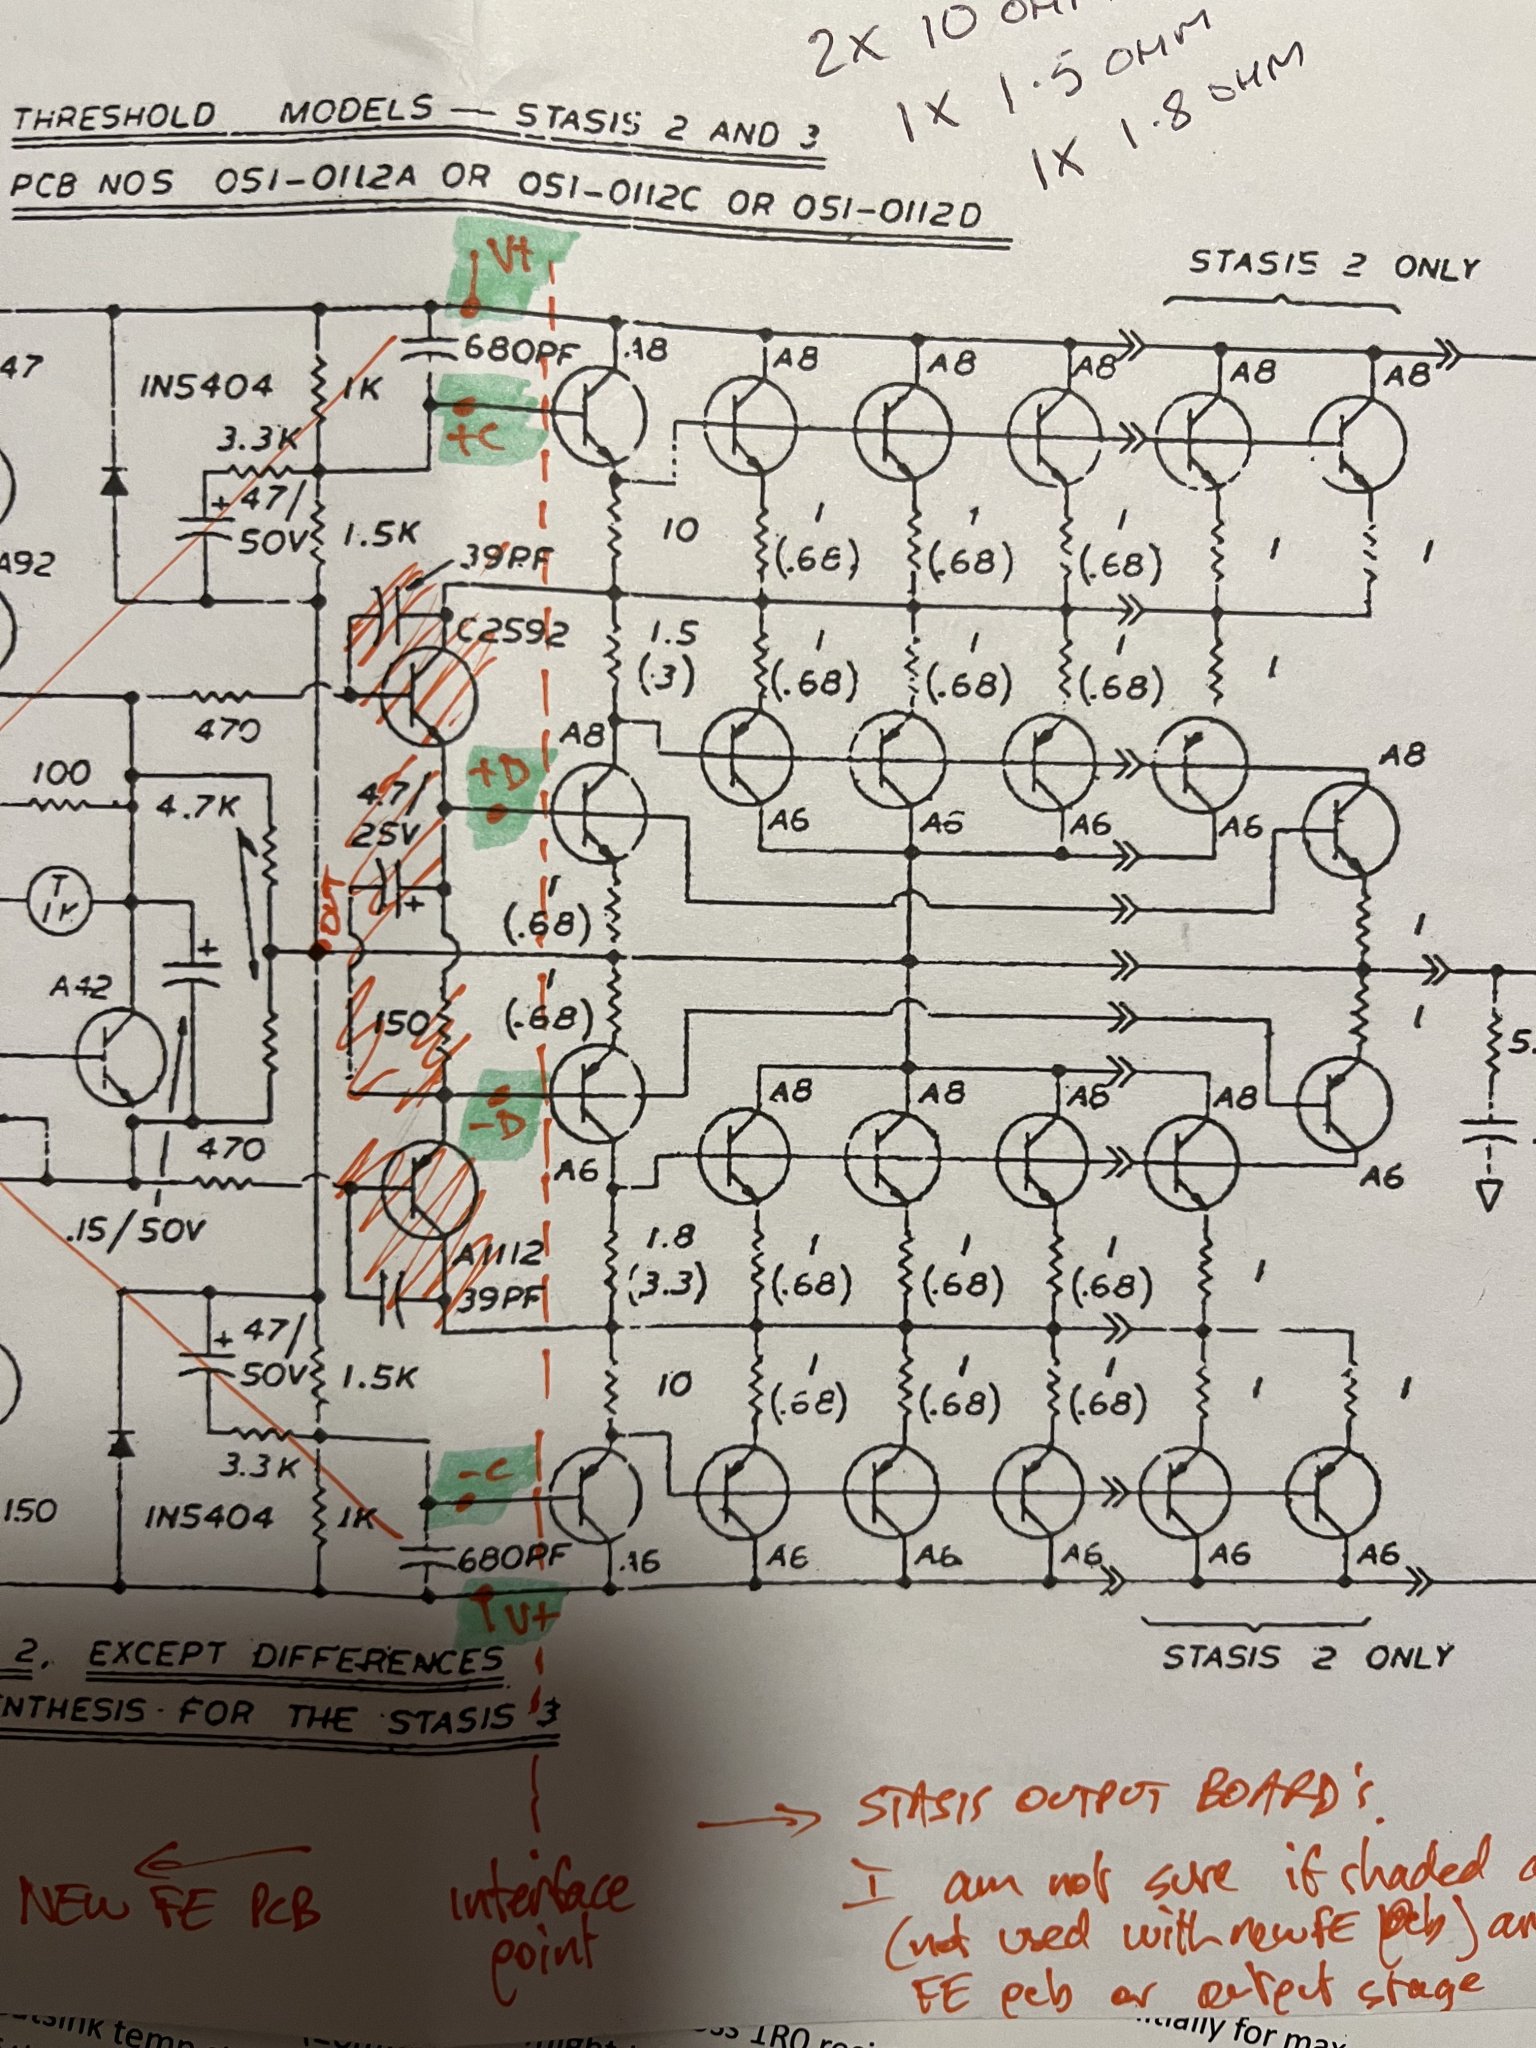 2X 10 OHM
1X 1.5 OHM
1X 1.8 OHM
THRESHOLD MODELS — STASIS 2 AND 3
PCB NOS 051-0112A OR 051-0112C OR 051-0112D
STASIS 2 ONLY
V+
47
1N5404
1K
680PF
A8
A8
A8
A8
A8
A8
+C
3.3K
+
47/
50V
1.5K
10
1
(.68)
1
(.68)
1
(.68)
1
1
A92
39PF
C2592
1.5
(.3)
1
(.68)
1
(.68)
1
(.68)
1
470
A8
A8
100
4.7K
+D
4.7/
25V
A6
A6
A6
A6
T
1K
OUT
+
1
(.68)
1
+
A42
150
1
(.68)
1
5.
-D
A8
A8
A8
A8
470
A6
A6
.15/50V
A1112
39PF
1.8
(3.3)
1
(.68)
1
(.68)
1
(.68)
1
+
47/
50V
1.5K
10
1
(.68)
1
(.68)
1
(.68)
1
1
3.3K
-C
150
1N5404
1K
680PF
A6
A6
A6
A6
A6
A6
V+
2. EXCEPT DIFFERENCES
STASIS 2 ONLY
NTHESIS FOR THE STASIS 3
→ STASIS OUTPUT BOARD's.
← NEW FE PCB
interface
point
I am not sure if shaded
(not used with new FE pcb)
FE pcb or output stage
tsink temp
1R0
tially for max